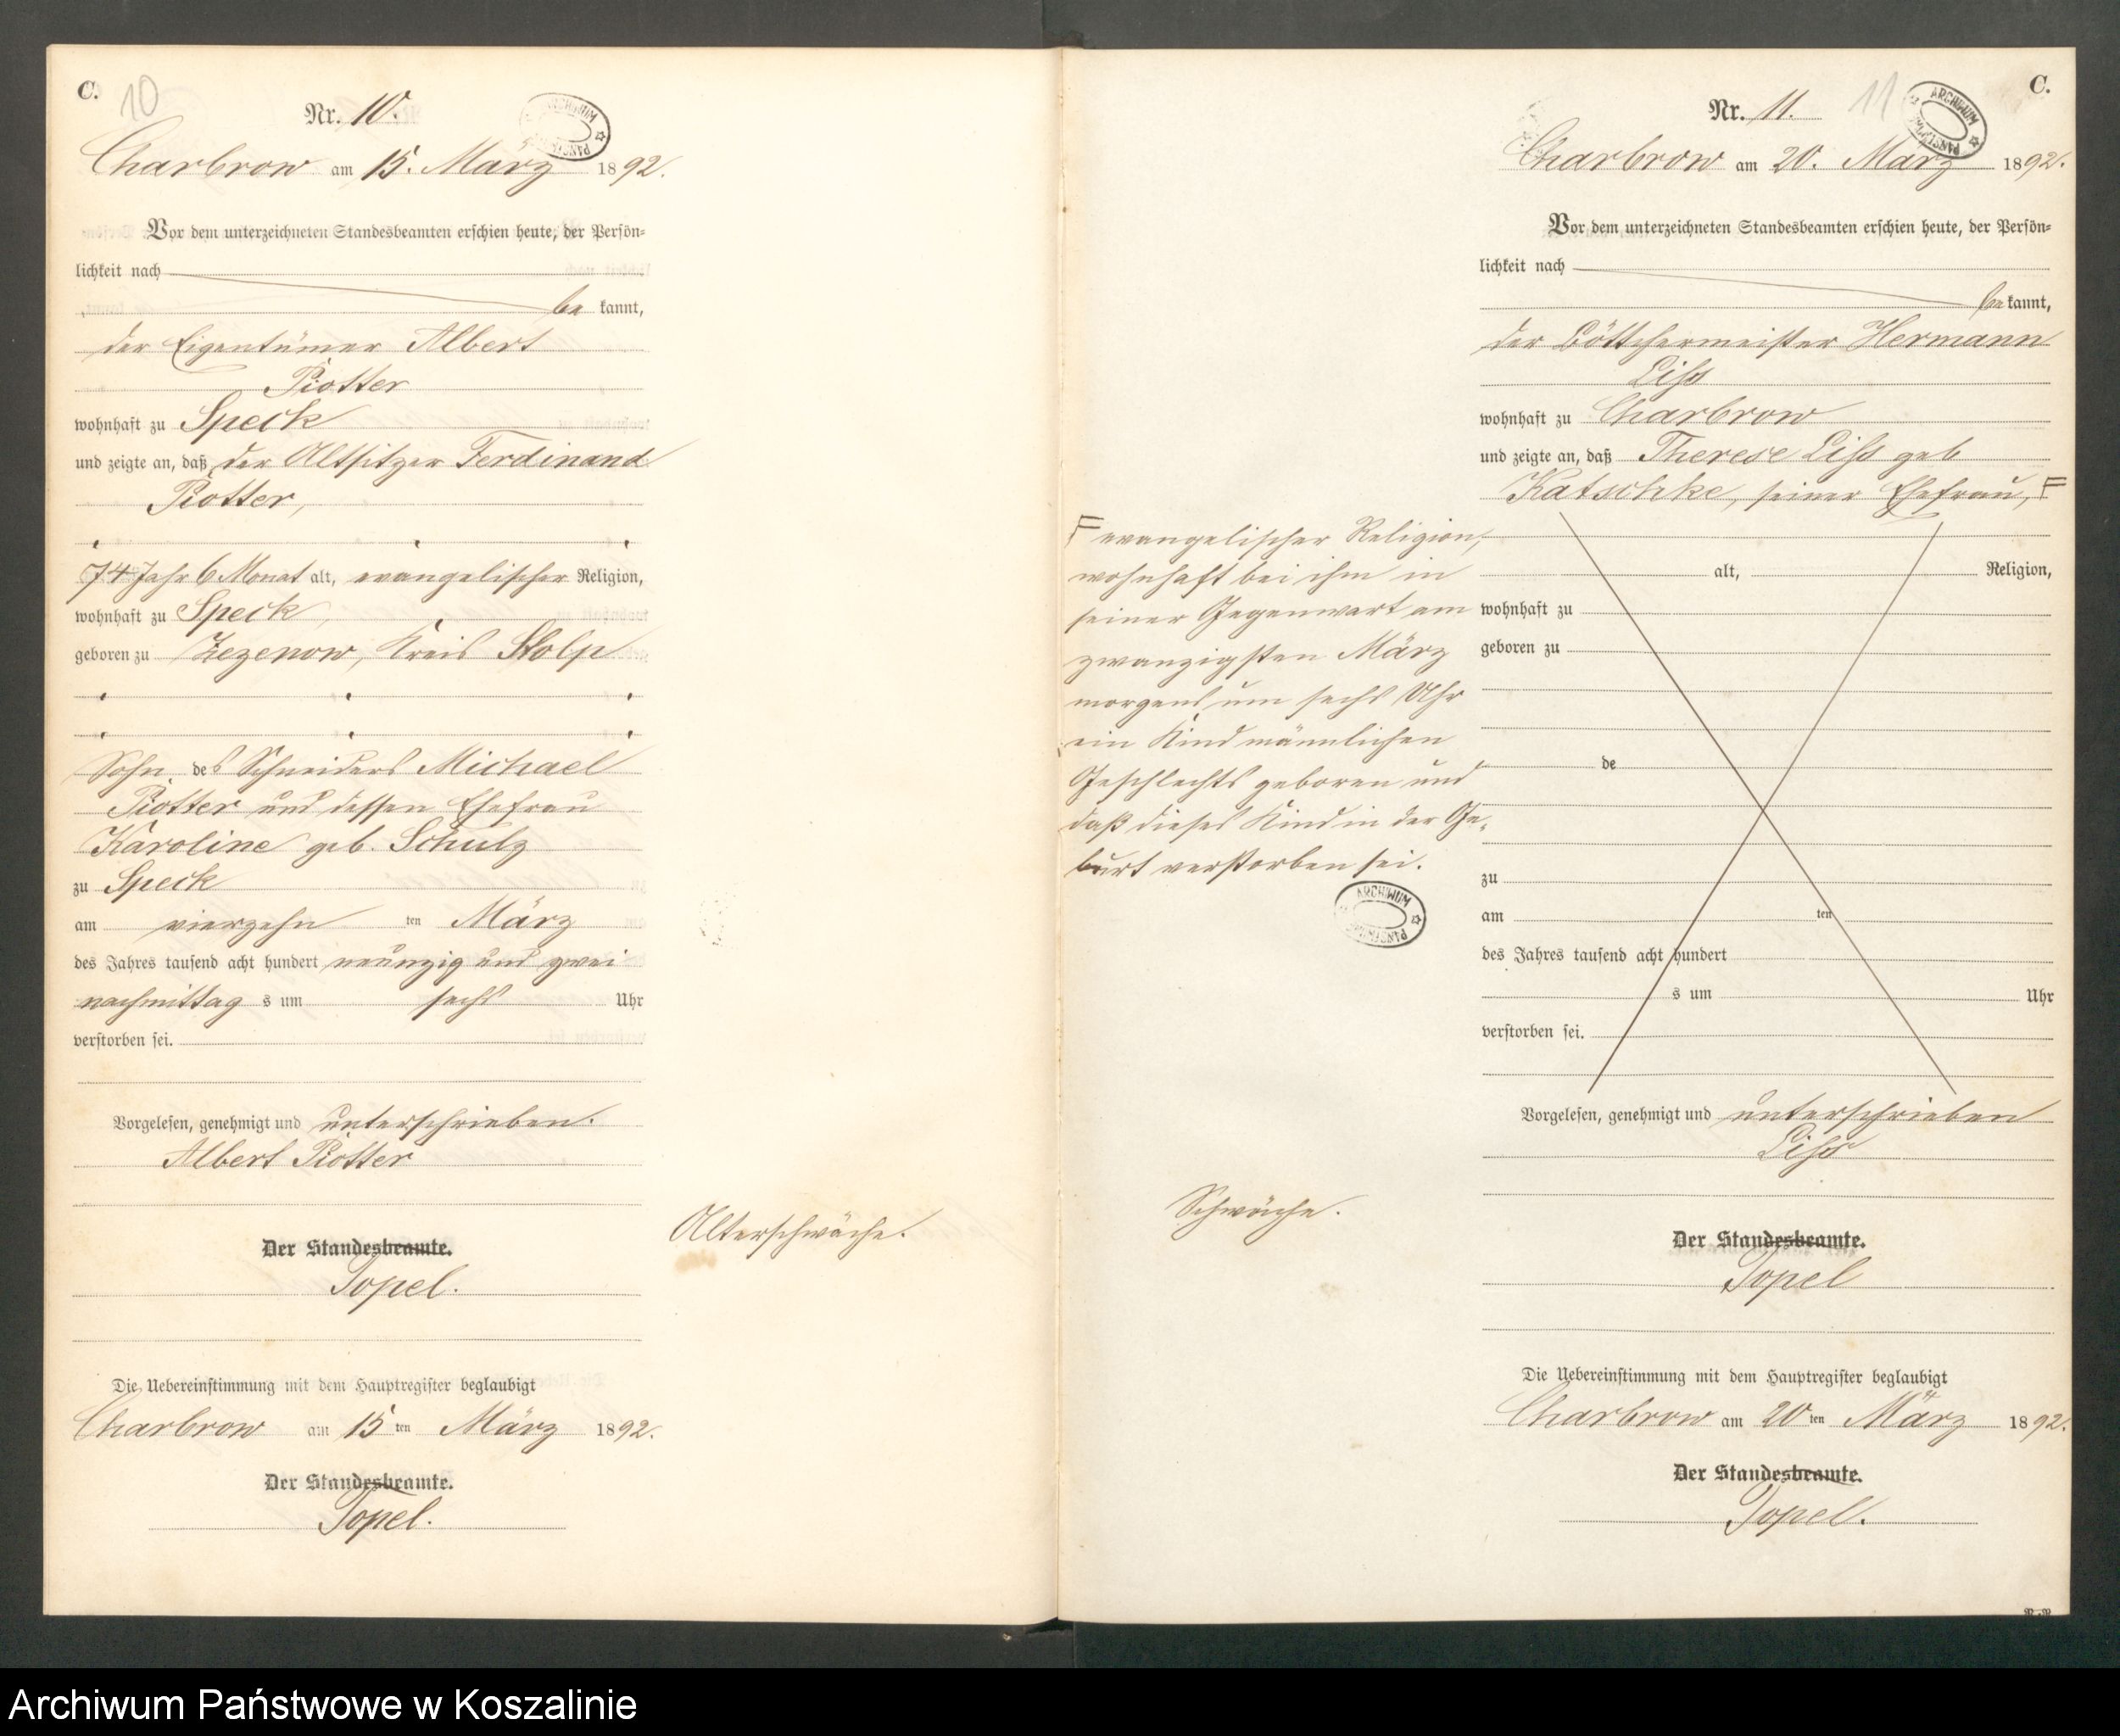 C. 10
Nr. 10.
ARCHIWUM PAŃSTW
Charbrow am 15. März 1892.
Vor dem unterzeichneten Standesbeamten erschien heute, der Persön-
lichkeit nach
be kannt,
der Eigentümer Albert
Piotter
wohnhaft zu Speck
und zeigte an, daß der Altsitzer Ferdinand
Piotter,
74 Jahr 6 Monat alt, evangelischer Religion,
wohnhaft zu Speck,
geboren zu Zezenow, Kreis Stolp
Sohn des Schneiders Michael
Piotter und dessen Ehefrau
Karoline geb. Schulz
zu Speck
am vierzehn ten März
des Jahres tausend acht hundert neunzig und zwei
nachmittag s um sechs Uhr
verstorben sei.
Vorgelesen, genehmigt und unterschrieben.
Albert Piotter
Alterschwäche.
Der Standesbeamte.
Topel.
Die Uebereinstimmung mit dem Hauptregister beglaubigt
Charbrow am 15 ten März 1892.
Der Standesbeamte.
Topel.
11 C.
Nr. 11.
ARCHIWUM PAŃSTW
Charbrow am 20. März 1892.
Vor dem unterzeichneten Standesbeamten erschien heute, der Persön-
lichkeit nach
be kannt,
der Böttchermeister Hermann
Liss
wohnhaft zu Charbrow
und zeigte an, daß Therese Liss geb
Katschke, seiner Ehefrau, F
F evangelischer Religion,
wohnhaft bei ihm in
seiner Gegenwart am
zwanzigsten März
morgens um sechs Uhr
ein Kind männlichen
Geschlechts geboren und
daß dieses Kind in der Ge-
burt verstorben sei.
ARCHIWUM PAŃSTW
alt, Religion,
wohnhaft zu
geboren zu
de
zu
am ten
des Jahres tausend acht hundert
s um Uhr
verstorben sei.
Vorgelesen, genehmigt und unterschrieben
Liss
Schwäche.
Der Standesbeamte.
Topel
Die Uebereinstimmung mit dem Hauptregister beglaubigt
Charbrow am 20 ten März 1892.
Der Standesbeamte.
Topel.
Archiwum Państwowe w Koszalinie